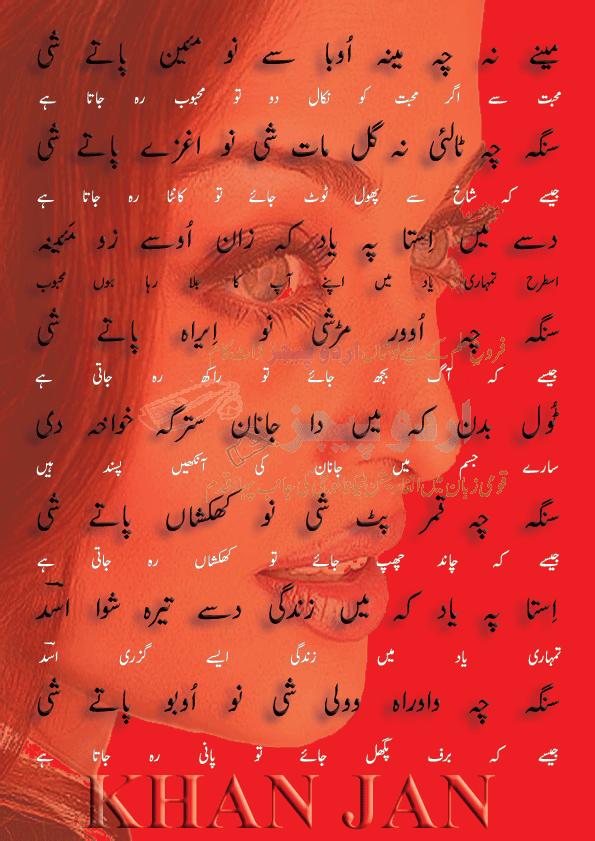 مینے نہ چہ مینہ اُوبا سے نو مئین پاتے شی
محبت سے اگر محبت کو نکال دو تو محبوب رہ جاتا ہے
سنگہ چہ ٹالئی نہ گل مات شی نو اغزے پاتے شی
جیسے کہ شاخ سے پھول ٹوٹ جائے تو کانٹا رہ جاتا ہے
دسے میں اِستا پہ یاد کہ زان اُوسے زو مَئینہ
اسطرح تمہاری یاد میں اپنے آپ کا جلا رہا ہوں محبوب
سنگہ چہ اُوور مڑشی نو اِیراہ پاتے شی
جیسے کہ آگ بجھ جائے تو راکھ رہ جاتی ہے
ٹول بدن کہ میں دا جانان سترگہ خواخہ دی
سارے جسم میں جانان کی آنکھیں پسند ہیں
اردو پیجز
سنگہ چہ قمر پٹ شی نو کھکشاں پاتے شی
جیسے کہ چاند چھپ جائے تو کھکشاں رہ جاتی ہے
اِستا پہ یاد کہ میں زندگی دسے تیرہ شوا اسؔد
تمہاری یاد میں زندگی ایسے گزری اسؔد
سنگہ چہ داوراہ وولی شی نو اُوبو پاتے شی
جیسے کہ برف پگھل جائے تو پانی رہ جاتا ہے
KHAN JAN